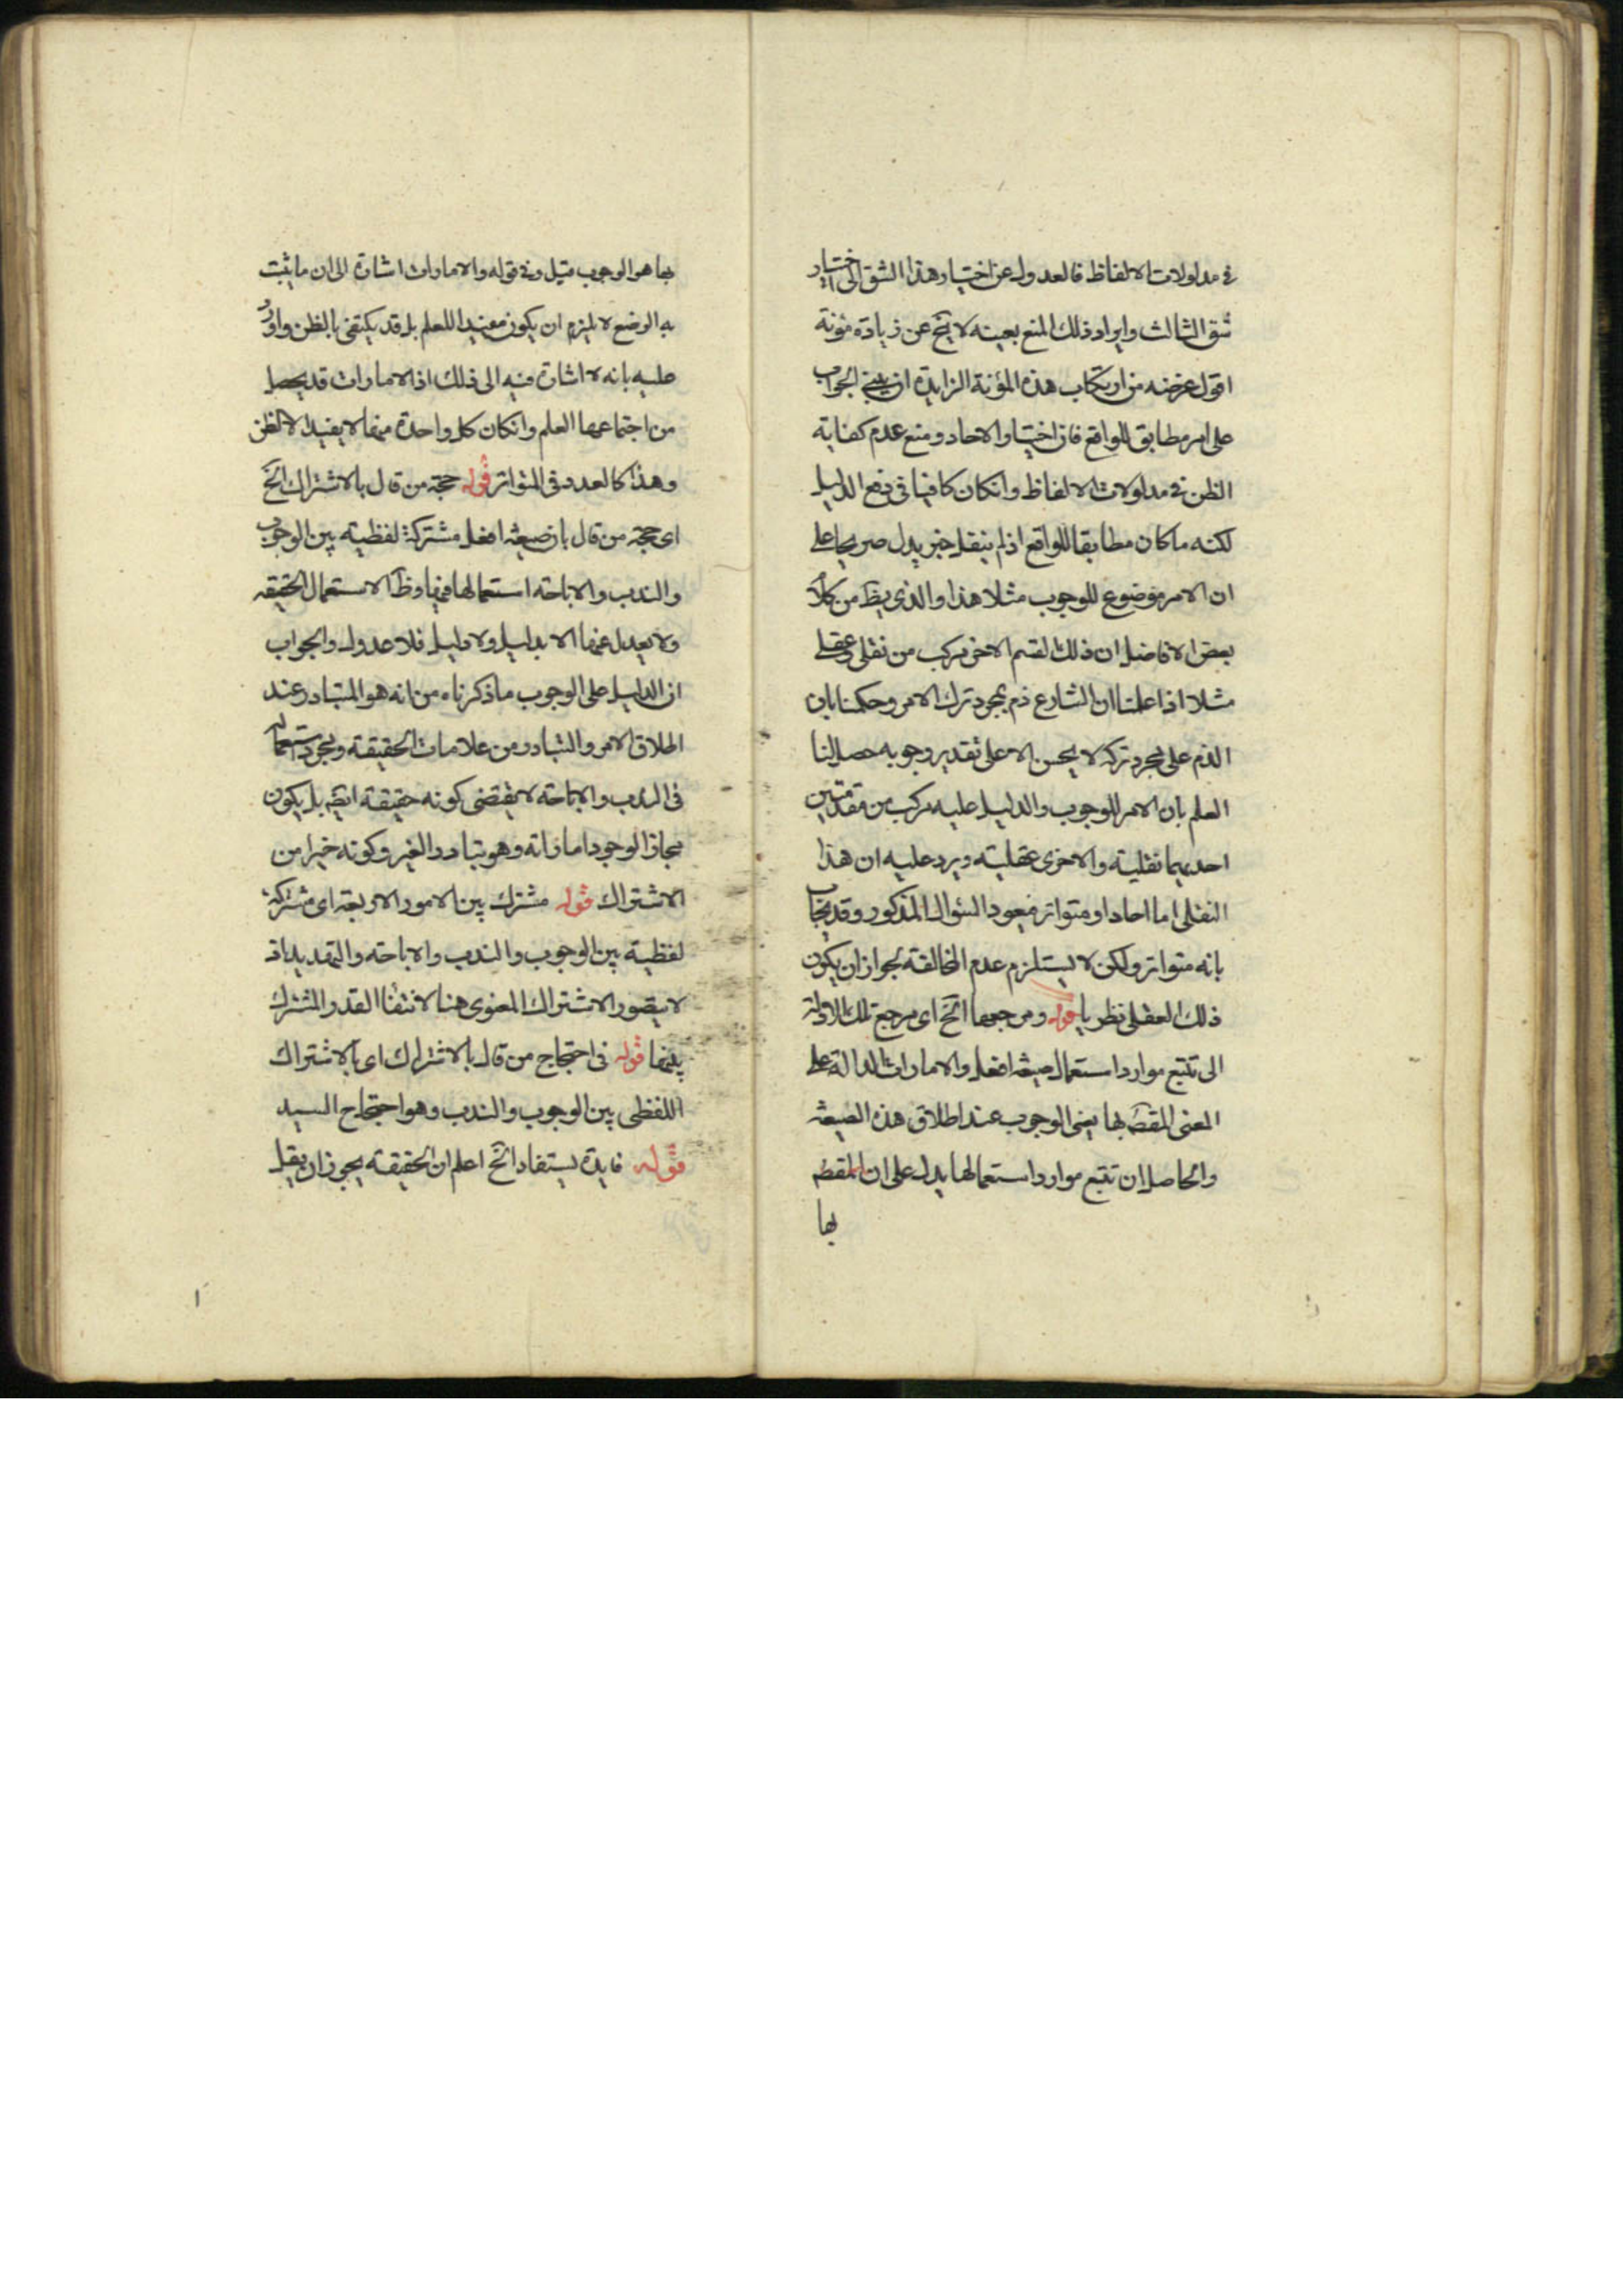 في مدلولات الالفاظ فالعدول عن اختيار هذا الشق الى اختيار
شق الثالث وايراد ذلك المنع بعينه لا يخ عن زيادة مؤنة
اقول غرضه من ارتكاب هذه المؤنة الزايدة ان يبنى الجواب
على امر مطابق للواقع فان اختيار الاحاد ومنع عدم كفاية
الظن في مدلولات الالفاظ وانكان كافيا في دفع الدليل
لكنه ما كان مطابقا للواقع اذ لم ينقل خبر يدل صريحا على
ان الامر موضوع للوجوب مثلا هذا والذي يظ من كلام
بعض الافاضل ان ذلك لقسم الاخر مركب من نقلى وعقلى
مثلا اذا علمنا ان الشارع ذم بمجرد ترك الامر وحكمنا بان
الذم على مجرد تركه لا يحسن الا على تقدير وجوبه حصل لنا
العلم بان الامر للوجوب والدليل عليه مركب من مقدمتين
احديهما نقلية والاخرى عقلية ويرد عليه ان هذا
النقلى اما احاد او متواتر فيعود السئوال المذكور وقد يجاب
بانه متواتر ولكن لا يستلزم عدم المخالفة لجواز ان يكون
ذلك العقلى نظريا قوله ومرجعها الخ اى مرجع تلك الادلة
الى تتبع موارد استعمال صيغة افعل والامارات الدالة على
المعنى المقصَ بها يعنى الوجوب عند اطلاق هذه الصيغة
والحاصل ان تتبع موارد استعمالها يدل على ان المقصَ
بها
بها هو الوجوب قيل وفي قوله والامارات اشارة الى ان ما يثبت
به الوضع لا يلزم ان يكون مفيدا للعلم بل قد يكتفى بالظن واورد
عليه بانه لا اشارة فيه الى ذلك اذ الامارات قد يحصل
من اجتماعها العلم وانكان كل واحدة منها لا يفيد الا الظن
وهذا كالعدد في المتواتر قوله حجة من قال بالاشتراك الخ
اى حجة من قال بان صيغة افعل مشتركة لفظية بين الوجوب
والندب والاباحة استعمالها فيها وظَ الاستعمال الحقيقة
ولا يعدل عنها الا بدليل ولا دليل فلا عدول والجواب
ان الدليل على الوجوب ما ذكرناه من انه هو المتبادر عند
اطلاق الامر والتبادر من علامات الحقيقة ومجرد استعماله
في الندب والاباحة لا يقتضى كونه حقيقة ايضَ بل يكون
مجازا لوجود اماراته وهو تبادر الغير وكونه خيرا من
الاشتراك قوله مشترك بين الامور الاربعة اى مشتركة
لفظية بين الوجوب والندب والاباحة والتهديد اذ
لا يتصور الاشتراك المعنوى هنا لانتفاء القدر المشترك
بينها قوله في احتجاج من قال بالاشتراك اى بالاشتراك
اللفظى بين الوجوب والندب وهو احتجاج السيد
قوله فايدة يستفاد الخ اعلم ان الحقيقة يجوز ان يقل